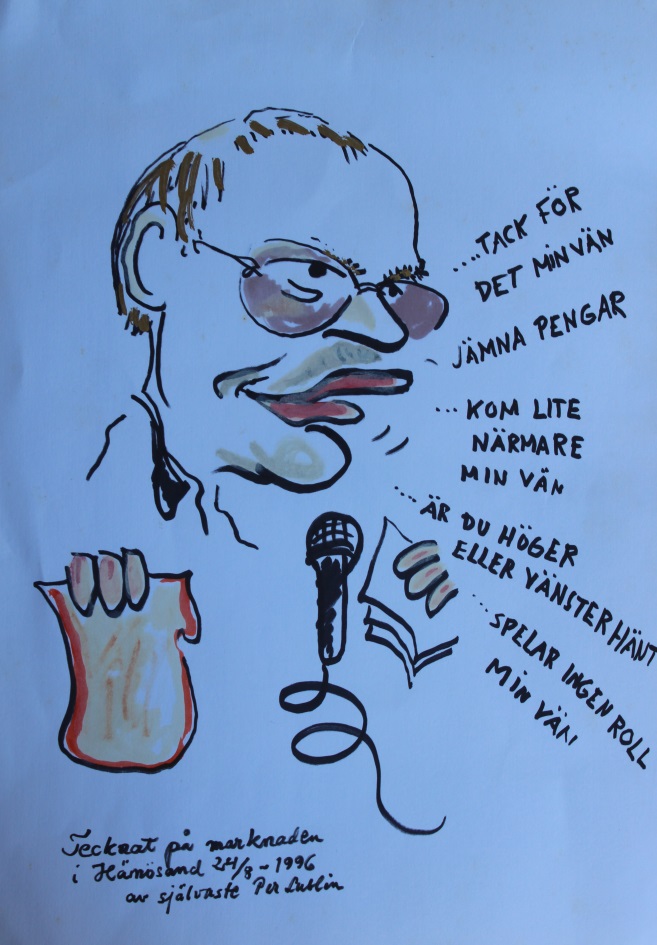 ....TACK FÖR
DET MIN VÄN
JÄMNA PENGAR
...KOM LITE
NÄRMARE
MIN VÄN
...ÄR DU HÖGER
ELLER VÄNSTER HÄNT
...SPELAR INGEN ROLL
MIN VÄN
Tecknat på marknaden
i Härnösand 24/8-1996
av självaste Per Lublin